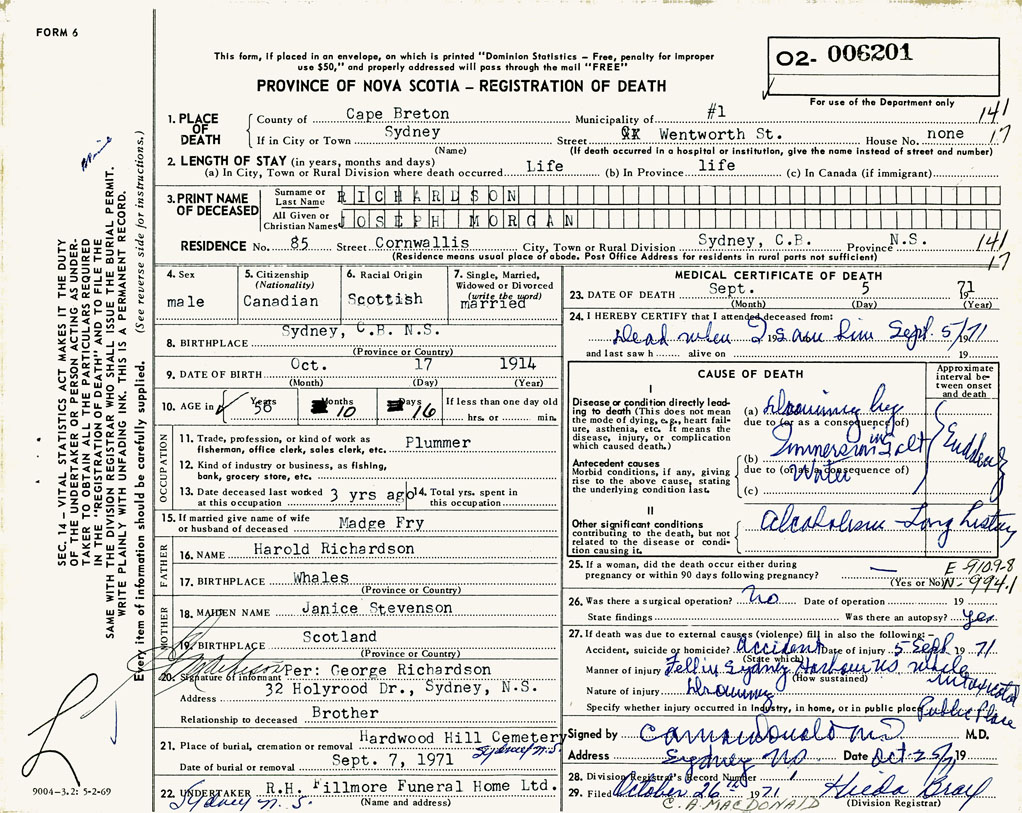 FORM 6
This form, if placed in an envelope, on which is printed "Dominion Statistics – Free, penalty for improper
use $50," and properly addressed will pass through the mail "FREE"
PROVINCE OF NOVA SCOTIA – REGISTRATION OF DEATH
02- 006201
For use of the Department only
1. PLACE OF DEATH
County of Cape Breton Municipality of #1 141
If in City or Town Sydney Street Wentworth St. House No. none 17
(Name) (If death occurred in a hospital or institution, give the name instead of street and number)
2. LENGTH OF STAY (in years, months and days)
(a) In City, Town or Rural Division where death occurred Life (b) In Province life (c) In Canada (if immigrant)
3. PRINT NAME OF DECEASED
Surname or Last Name RICHARDSON
All Given or Christian Names JOSEPH MORGAN
RESIDENCE No. 85 Street Cornwallis City, Town or Rural Division Sydney, C.B. Province N.S. 141
(Residence means usual place of abode. Post Office Address for residents in rural parts not sufficient) 17
4. Sex
male
5. Citizenship
(Nationality)
Canadian
6. Racial Origin
Scottish
7. Single, Married,
Widowed or Divorced
(write the word)
married
8. BIRTHPLACE Sydney, C.B. N.S.
(Province or Country)
9. DATE OF BIRTH Oct. 17 1914
(Month) (Day) (Year)
10. AGE in Years 56 Months 10 Days 16 If less than one day old
hrs. or min.
OCCUPATION
11. Trade, profession, or kind of work as
fisherman, office clerk, sales clerk, etc. Plummer
12. Kind of industry or business, as fishing,
bank, grocery store, etc.
13. Date deceased last worked
at this occupation 3 yrs ago
14. Total yrs. spent in
this occupation
15. If married give name of wife
or husband of deceased Madge Fry
FATHER
16. NAME Harold Richardson
17. BIRTHPLACE Whales
(Province or Country)
MOTHER
18. MAIDEN NAME Janice Stevenson
19. BIRTHPLACE Scotland
(Province or Country)
20. Signature of Informant Per: George Richardson
Address 32 Holyrood Dr., Sydney, N.S.
Relationship to deceased Brother
21. Place of burial, cremation or removal Hardwood Hill Cemetery
Sydney N.S.
Date of burial or removal Sept. 7, 1971
22. UNDERTAKER R.H. Fillmore Funeral Home Ltd.
Sydney N.S. (Name and address)
MEDICAL CERTIFICATE OF DEATH
23. DATE OF DEATH Sept. 5 1971
(Month) (Day) (Year)
24. I HEREBY CERTIFY that I attended deceased from:
Dead when I saw him Sept. 5/71 19
and last saw h alive on 19
CAUSE OF DEATH
Approximate interval between onset and death
I
Disease or condition directly leading to death (This does not mean the mode of dying, e.g., heart failure, asthenia, etc. It means the disease, injury, or complication which caused death.)
(a) Drowning by
due to (or as a consequence of)
Immersion in Salt
Antecedent causes
Morbid conditions, if any, giving rise to the above cause, stating the underlying condition last.
(b)
due to (or as a consequence of)
Water
(c)
Suddenly
II
Other significant conditions
contributing to the death, but not related to the disease or condition causing it.
Alcoholism – Long history
25. If a woman, did the death occur either during
pregnancy or within 90 days following pregnancy? —
(Yes or No)
E-9109-8
N-994.1
26. Was there a surgical operation? No Date of operation 19
State findings Was there an autopsy? yes.
27. If death was due to external causes (violence) fill in also the following:–
Accident, suicide or homicide? Accident Date of injury 5 Sept 1971
(State which)
Manner of injury Fell in Sydney Harbour NS while
(How sustained) intoxicated
Nature of injury Drowning
Specify whether injury occurred in Industry, in home, or in public place Public Place
Signed by M.D.
Address Sydney NS Date Oct 25/71 19
28. Division Registrar's Record Number
29. Filed October 26th 1971 Hilda Bray
C. A. MACDONALD (Division Registrar)
SEC. 14 – VITAL STATISTICS ACT MAKES IT THE DUTY
OF THE UNDERTAKER OR PERSON ACTING AS UNDER-
TAKER TO OBTAIN ALL THE PARTICULARS REQUIRED
IN THE "REGISTRATION OF DEATH" AND TO FILE THE
SAME WITH THE DIVISION REGISTRAR WHO SHALL ISSUE THE BURIAL PERMIT.
WRITE PLAINLY WITH UNFADING INK. THIS IS A PERMANENT RECORD.
Every item of information should be carefully supplied. (See reverse side for instructions.)
9004-3.2: 5-2-69